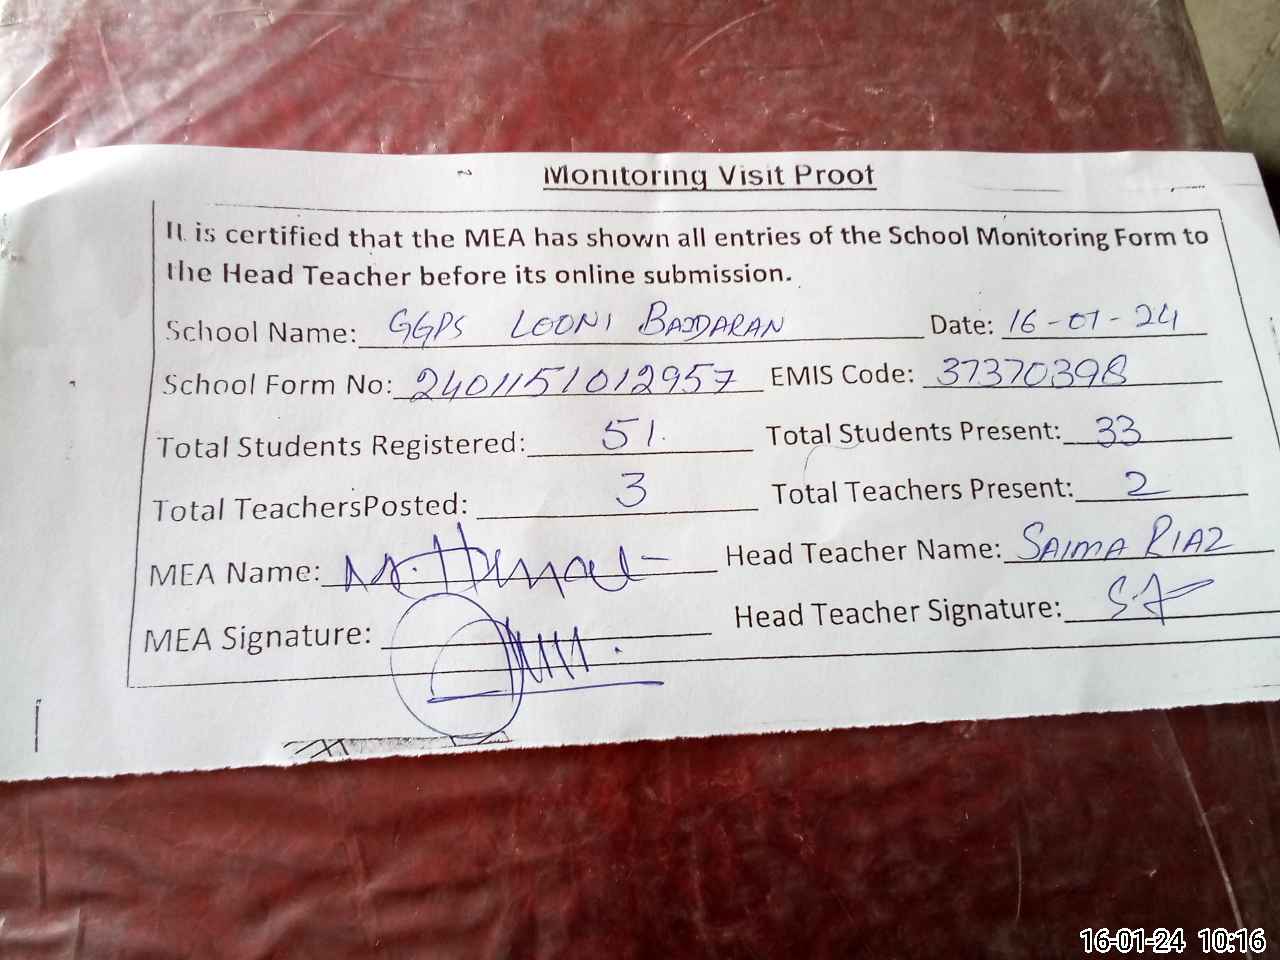 Monitoring Visit Proof
It is certified that the MEA has shown all entries of the School Monitoring Form to
the Head Teacher before its online submission.
School Name: GGPS LOONI BAJDARAN Date: 16-01-24
School Form No: 2401151012957 EMIS Code: 37370398
Total Students Registered: 51. Total Students Present: 33
Total TeachersPosted: 3 Total Teachers Present: 2
MEA Name: Head Teacher Name: SAIMA RIAZ
MEA Signature: Head Teacher Signature:
16-01-24 10:16